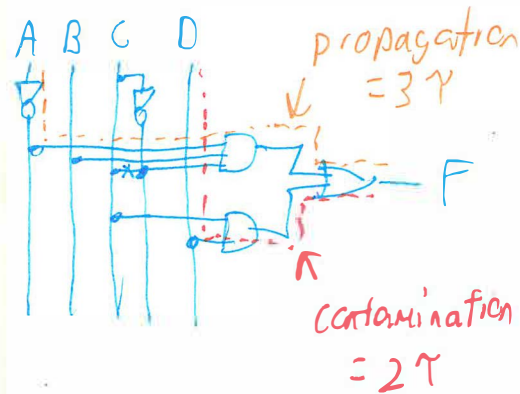 A B C D
propagation
= 3τ
F
contamination
= 2τ